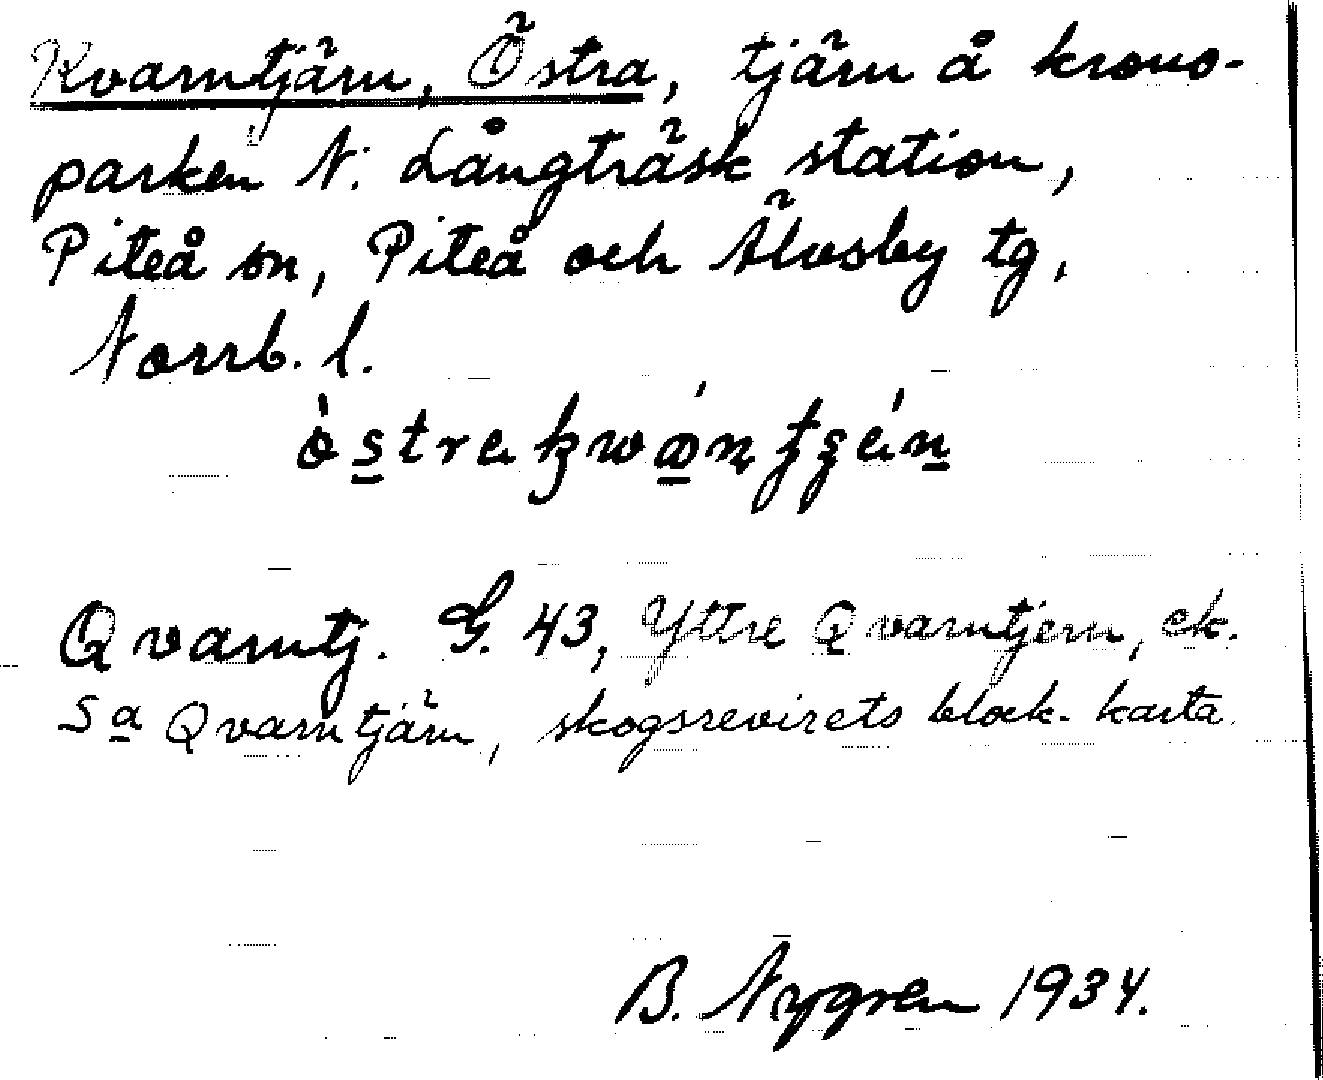 Kvarntjärn, Östra, tjärn å krono-
parken N. Långträsk station,
Piteå sn, Piteå och Älvsby tg,
Norrb. l.
Qvarntj. G. 43, Yttre Qvarntjern, ek.
Sa Qvarntjärn, skogsrevirets block-karta.
B. Nygren 1934.